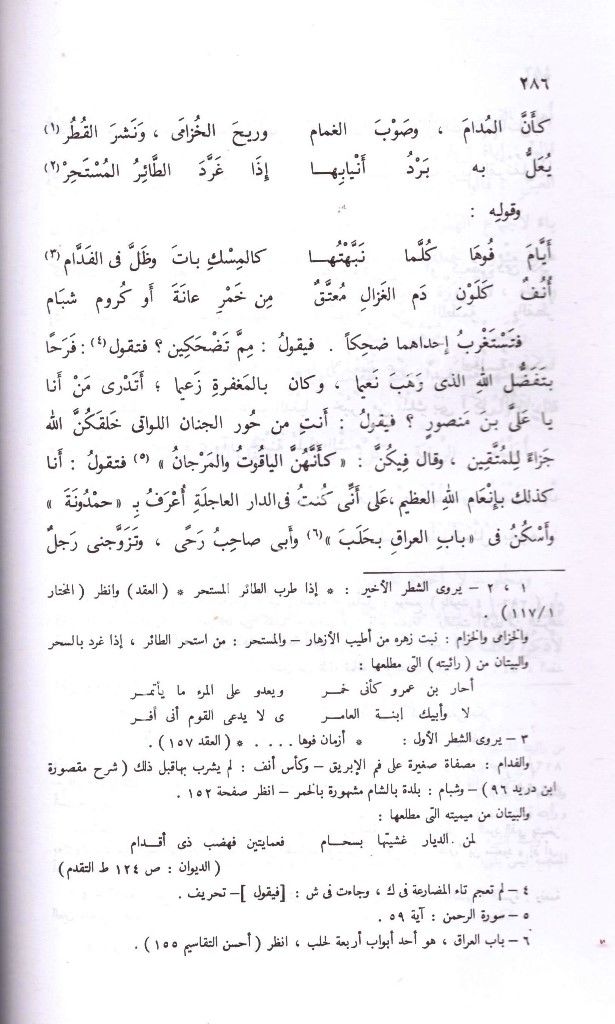 ٢٨٦
كأَنَّ المُدامَ ، وصَوْبَ الغمام وريحَ الخُزامَى ، وَنَشرَ القُطُر (١)
يُعَلُّ به بَرْدُ أَنْيابِهــا إِذَا غَرَّدَ الطَّائِرُ المُسْتَحِرْ (٢)
وقولِه :
أَيَّامَ فُوهَا كُلَّما نَبَّهْتُهــا كالمِسْكِ باتَ وظَلَّ فى الفَدَّام (٣)
أُنُفٌ كَلَوْنِ دَم الغَزالِ مُعتَّقٌ مِن خَمْرِ عانَةَ أَو كُروم شبَام
فتَسْتَغْربُ إِحداهما ضحِكاً . فيقولُ : مِمَّ تَضْحَكِين ؟ فتقول (٤) : فَرَحًا
بتَفَضُّل اللهِ الذى وَهَبَ نَعيما ، وكان بالمَغفرةِ زَعيما ؛ أَتَدْرى مَنْ أَنا
يا عَلىَّ بنَ مَنصورٍ ؟ فيقولُ : أَنتِ من حُور الجنان اللواتى خلَقكُنَّ الله
جَزاءً لِلمُتَّقين ، وقال فِيكُنَّ : « كأَنَّهُنَّ الياقُوتُ والمَرْجانُ » (٥) فتقول : أَنا
كذلك بإِنْعام اللهِ العظيم ، على أَنِّى كُنتُ فى الدار العاجلَةِ أُعْرَفُ بـ « حمْدُونَةَ »
وأَسْكُنُ فى « باب العراق بحَلَبَ » (٦) وأَبى صاحبُ رَحًى ، وتَزَوَّجَنى رَجلٌ
١ ، ٢ – يروى الشطر الأخير : * إذا طرب الطائر المستحر * (العقد) وانظر ( المختار
١/١١٧) .
والخزامى والخزام : نبت زهره من أطيب الأزهار – والمستحر : من استحر الطائر ، إذا غرد بالسحر
والبيتان من ( رائيته ) التى مطلعها :
أحار بن عمرو كأنى خمــر ويعدو على المرء ما يأتمــر
لا وأبيك ابنــة العامــر ى لا يدعى القوم أنى أفــر
٣ – يروى الشطر الأول : * أزمان فوها . . . . * ( العقد ١٥٧ ) .
والفدام : مصفاة صغيرة على فم الإبريق – وكأس أنف : لم يشرب بها قبل ذلك ( شرح مقصورة
ابن دريد ٩٦ ) – وشبام : بلدة بالشام مشهورة بالخمر – انظر صفحة ١٥٢ .
والبيتان من ميميته التى مطلعها :
لمن الديار غشيتها بسحــام فعمايتين فهضب ذى أقــدام
( الديوان : ص ١٢٤ ط التقدم )
٤ – لم تعجم تاء المضارعة فى ك ، وجاءت فى ش : [فيقول ] – تحريف .
٥ – سورة الرحمن : آية ٥٩ .
٦ – باب العراق ، هو أحد أبواب أربعة لحلب ، انظر ( أحسن التقاسيم ١٥٥ ) .